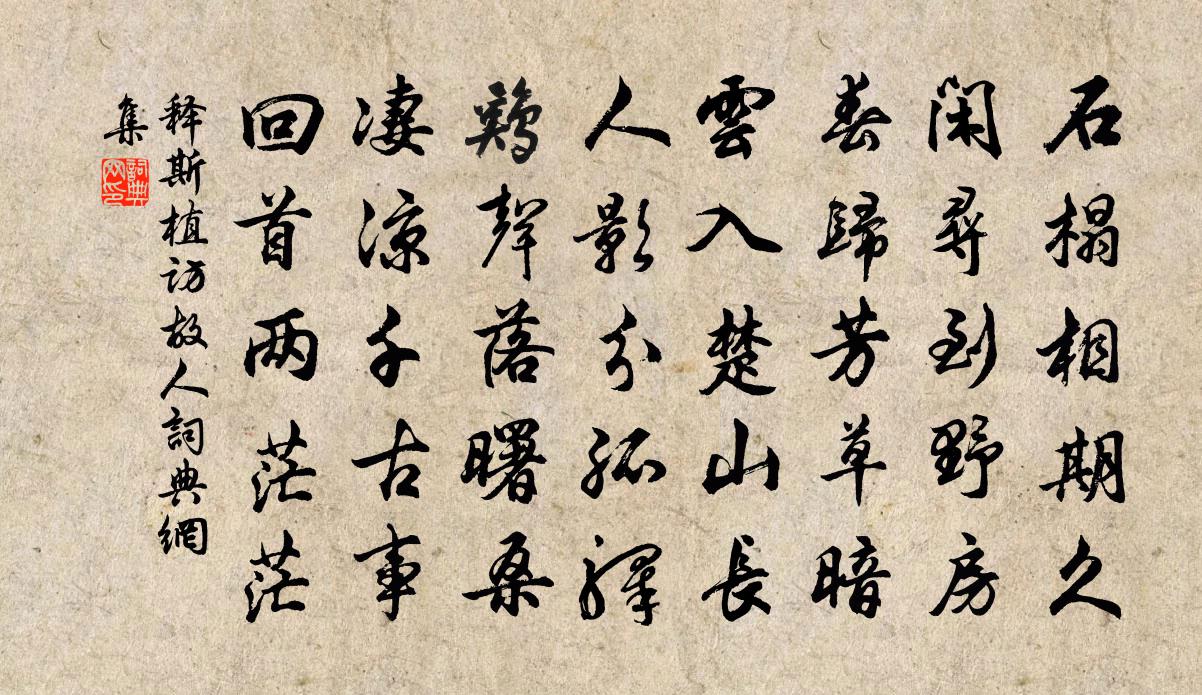 石榻相期久
閑尋到野房
春歸芳草暗
雲入楚山長
人影分孤驛
鷄聲落曙桑
凄凉千古事
回首兩茫茫
释斯植訪故人詞典網
集
詞典
网印